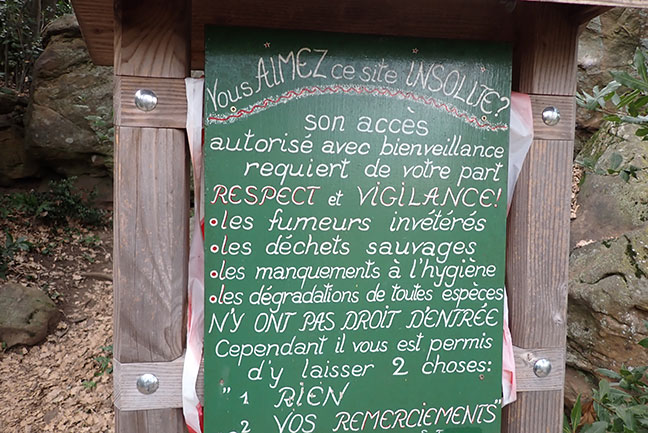 Vous AIMEZ ce site INSOLITE?
son accès
autorisé avec bienveillance
requiert de votre part
RESPECT et VIGILANCE!
•les fumeurs invétérés
•les déchets sauvages
•les manquements à l'hygiène
•les dégradations de toutes espèces
N'Y ONT PAS DROIT D'ENTRÉE
Cependant il vous est permis
d'y laisser 2 choses:
" 1 RIEN
2 VOS REMERCIEMENTS"